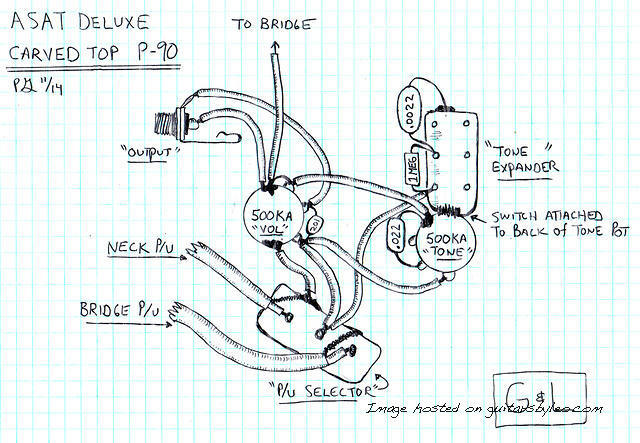 ASAT DELUXE
CARVED TOP P-90
11/14
TO BRIDGE
"OUTPUT"
.0022
1 MEG
"TONE"
EXPANDER
SWITCH ATTACHED
TO BACK OF TONE POT
500KA
"VOL"
201
.022
500KA
"TONE"
NECK P/U
BRIDGE P/U
"P/U SELECTOR"
G&L
Image hosted on guitarsbyleo.com